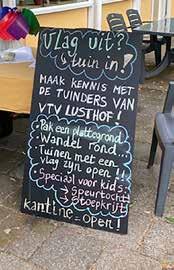 Vlag uit?
↳ tuin in!
MAAK KENNIS MET
DE TUINDERS VAN
VTV LUSTHOF!
• Pak een plattegrond
• Wandel rond...
• Tuinen met een
vlag zijn open!!
• Speciaal voor kids:
→ Speurtocht
→ Stoepkrijt
kantine = open!